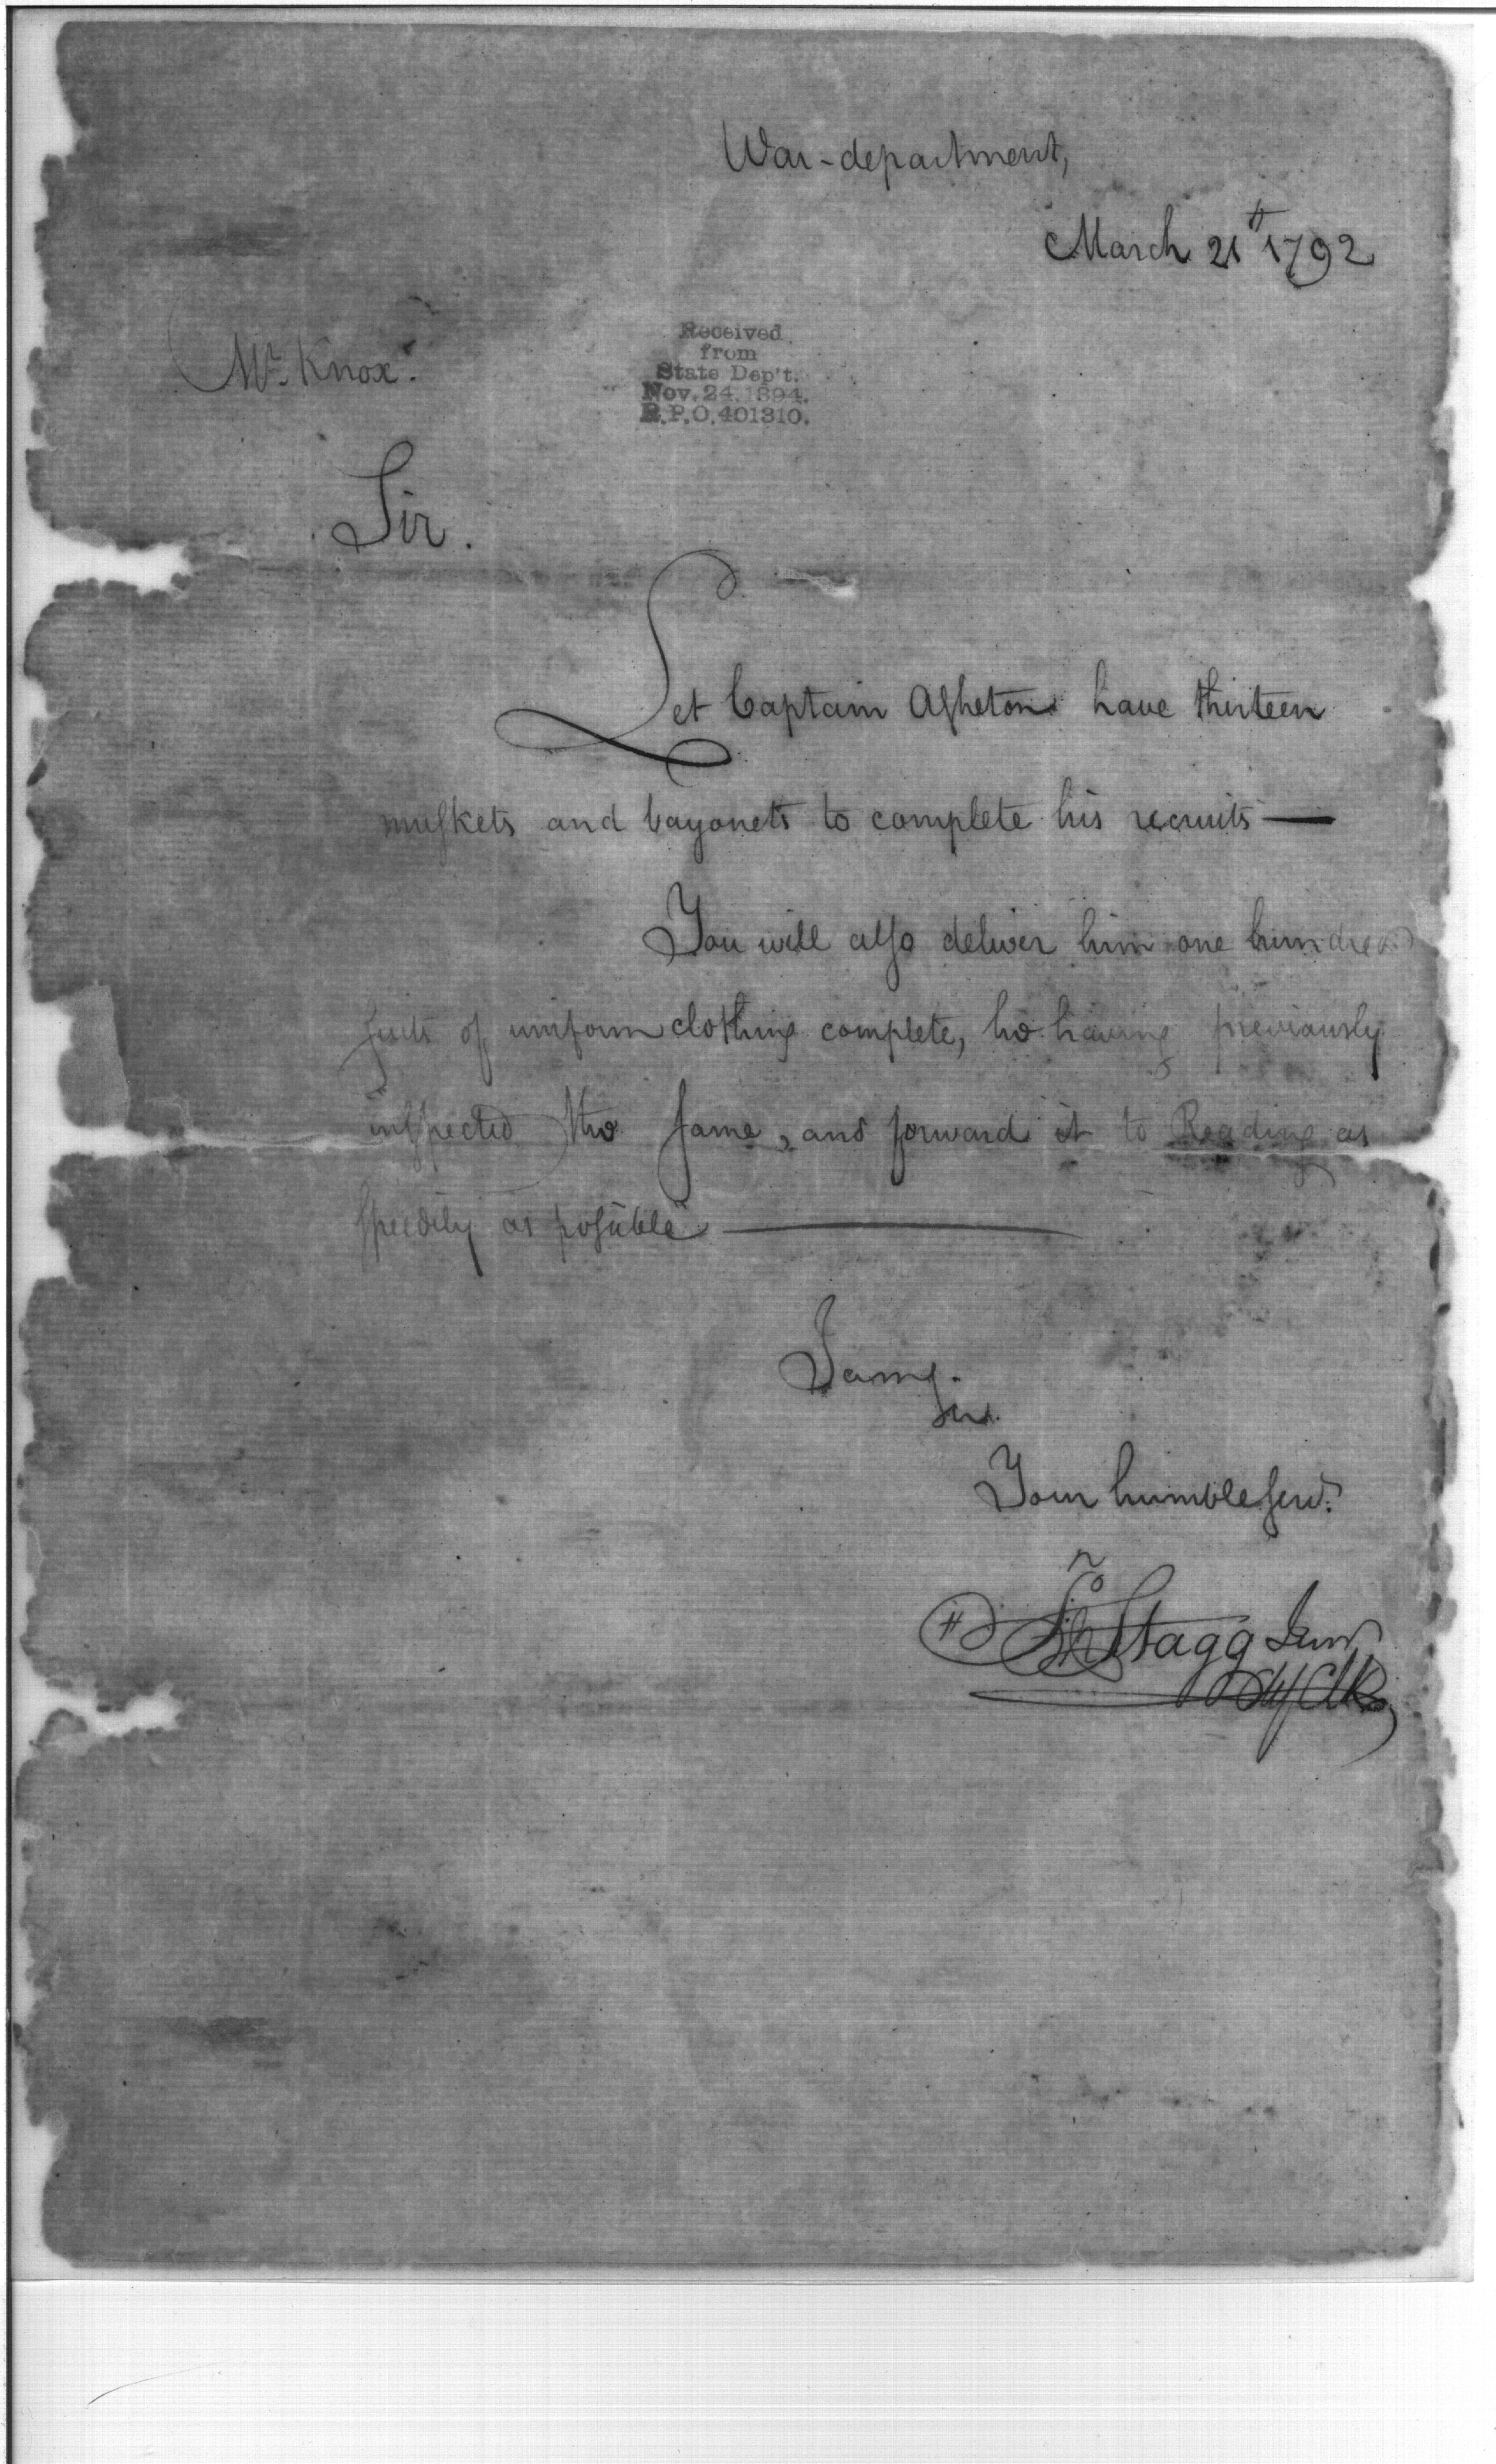 War-department,
March 21st 1792
Mr. Knox.
Received
from
State Dep't.
Nov. 24. 1894.
R.P.O. 401310.
Sir.
Let Captain Asheton have thirteen
muskets and bayonets to complete his recruits —
You will also deliver him one hundred
suits of uniform clothing complete, he having previously
inspected the same, and forward it to Reading as
speedily as possible —
I am,
Sir.
Your humble servt.
Jno Stagg Junr
Chf Clk